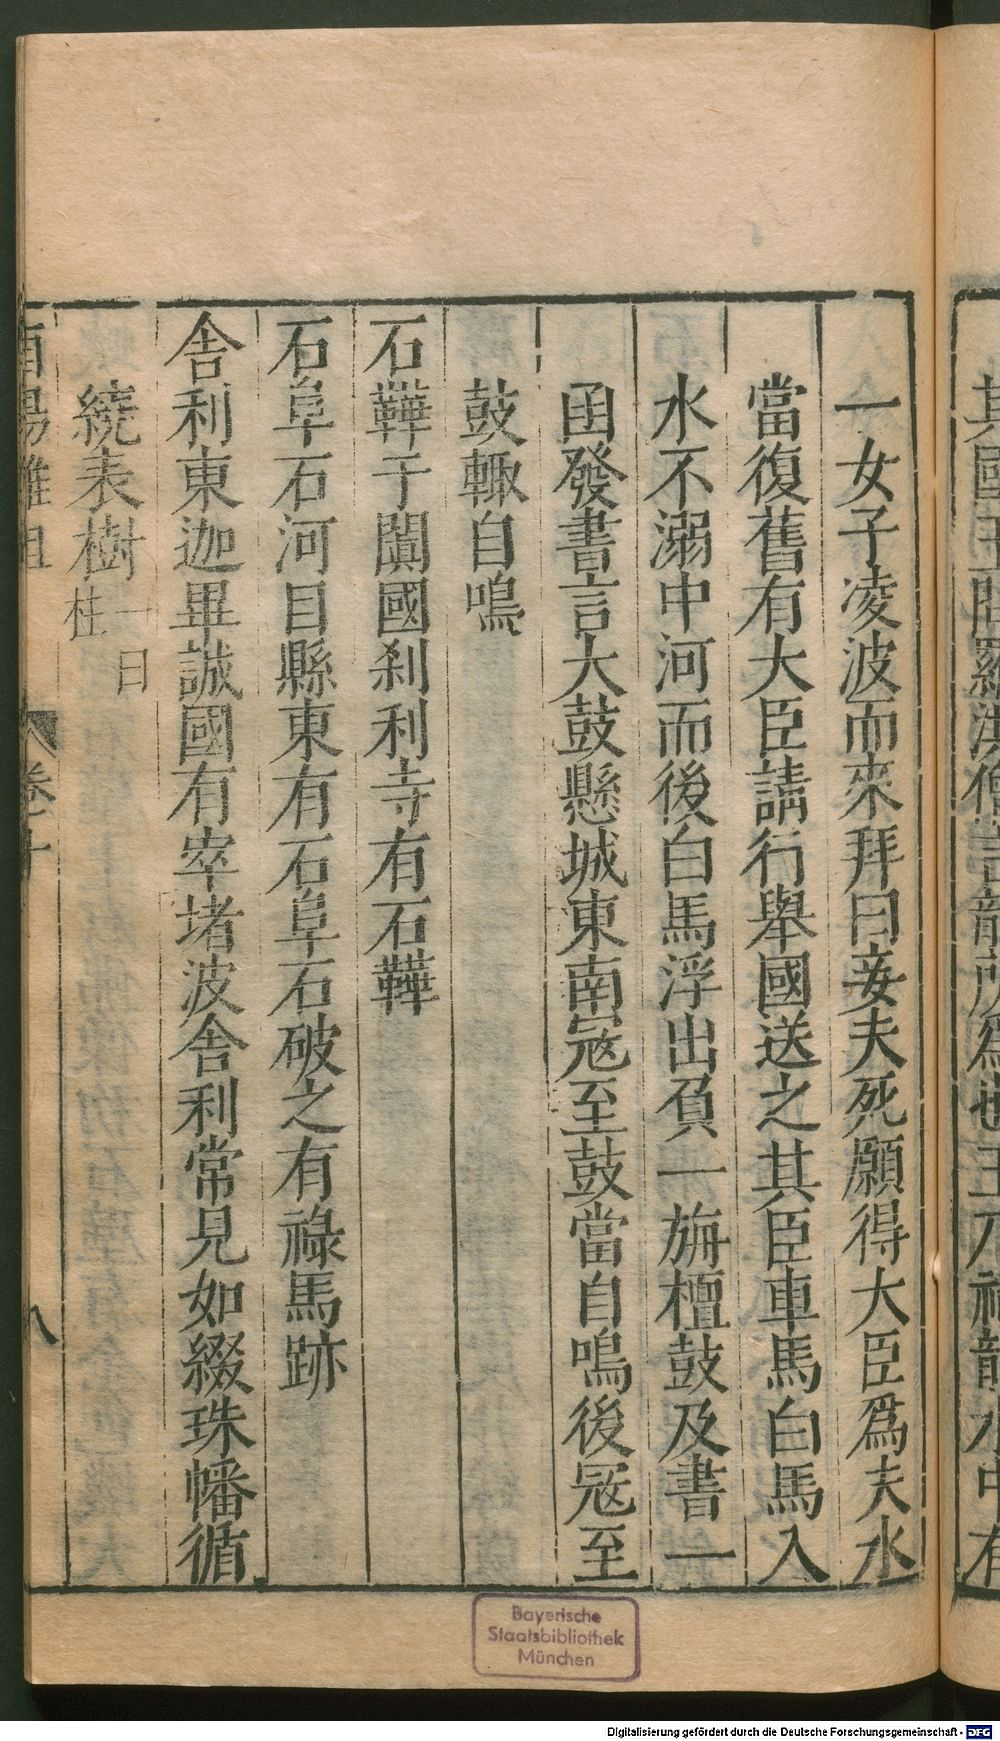 其國王問羅漢僧言龍所爲也王乃祠龍水中有
一女子凌波而來拜曰妾夫死願得大臣爲夫水
當復舊有大臣請行舉國送之其臣車馬白馬入
水不溺中河而後白馬浮出負一旃檀鼓及書一
函發書言大鼓懸城東南寇至鼓當自鳴後寇至
鼓輙自鳴
石鞾于闐國刹利寺有石鞾
石阜石河目縣東有石阜石破之有祿馬跡
舎利東迦畢誠國有窣堵波舎利常見如綴珠幡循
繞表樹一曰柱
酉陽雜俎 卷十 八
Bayerische
Staatsbibliothek
München
Digitalisierung gefördert durch die Deutsche Forschungsgemeinschaft - DFG